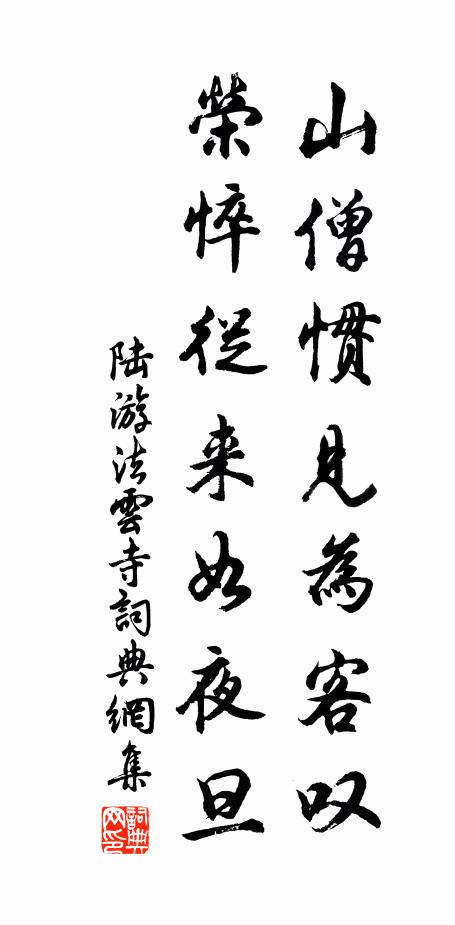 山僧慣見為客叹
榮悴從来如夜旦
陆游法雲寺詞典網集
詞典网印